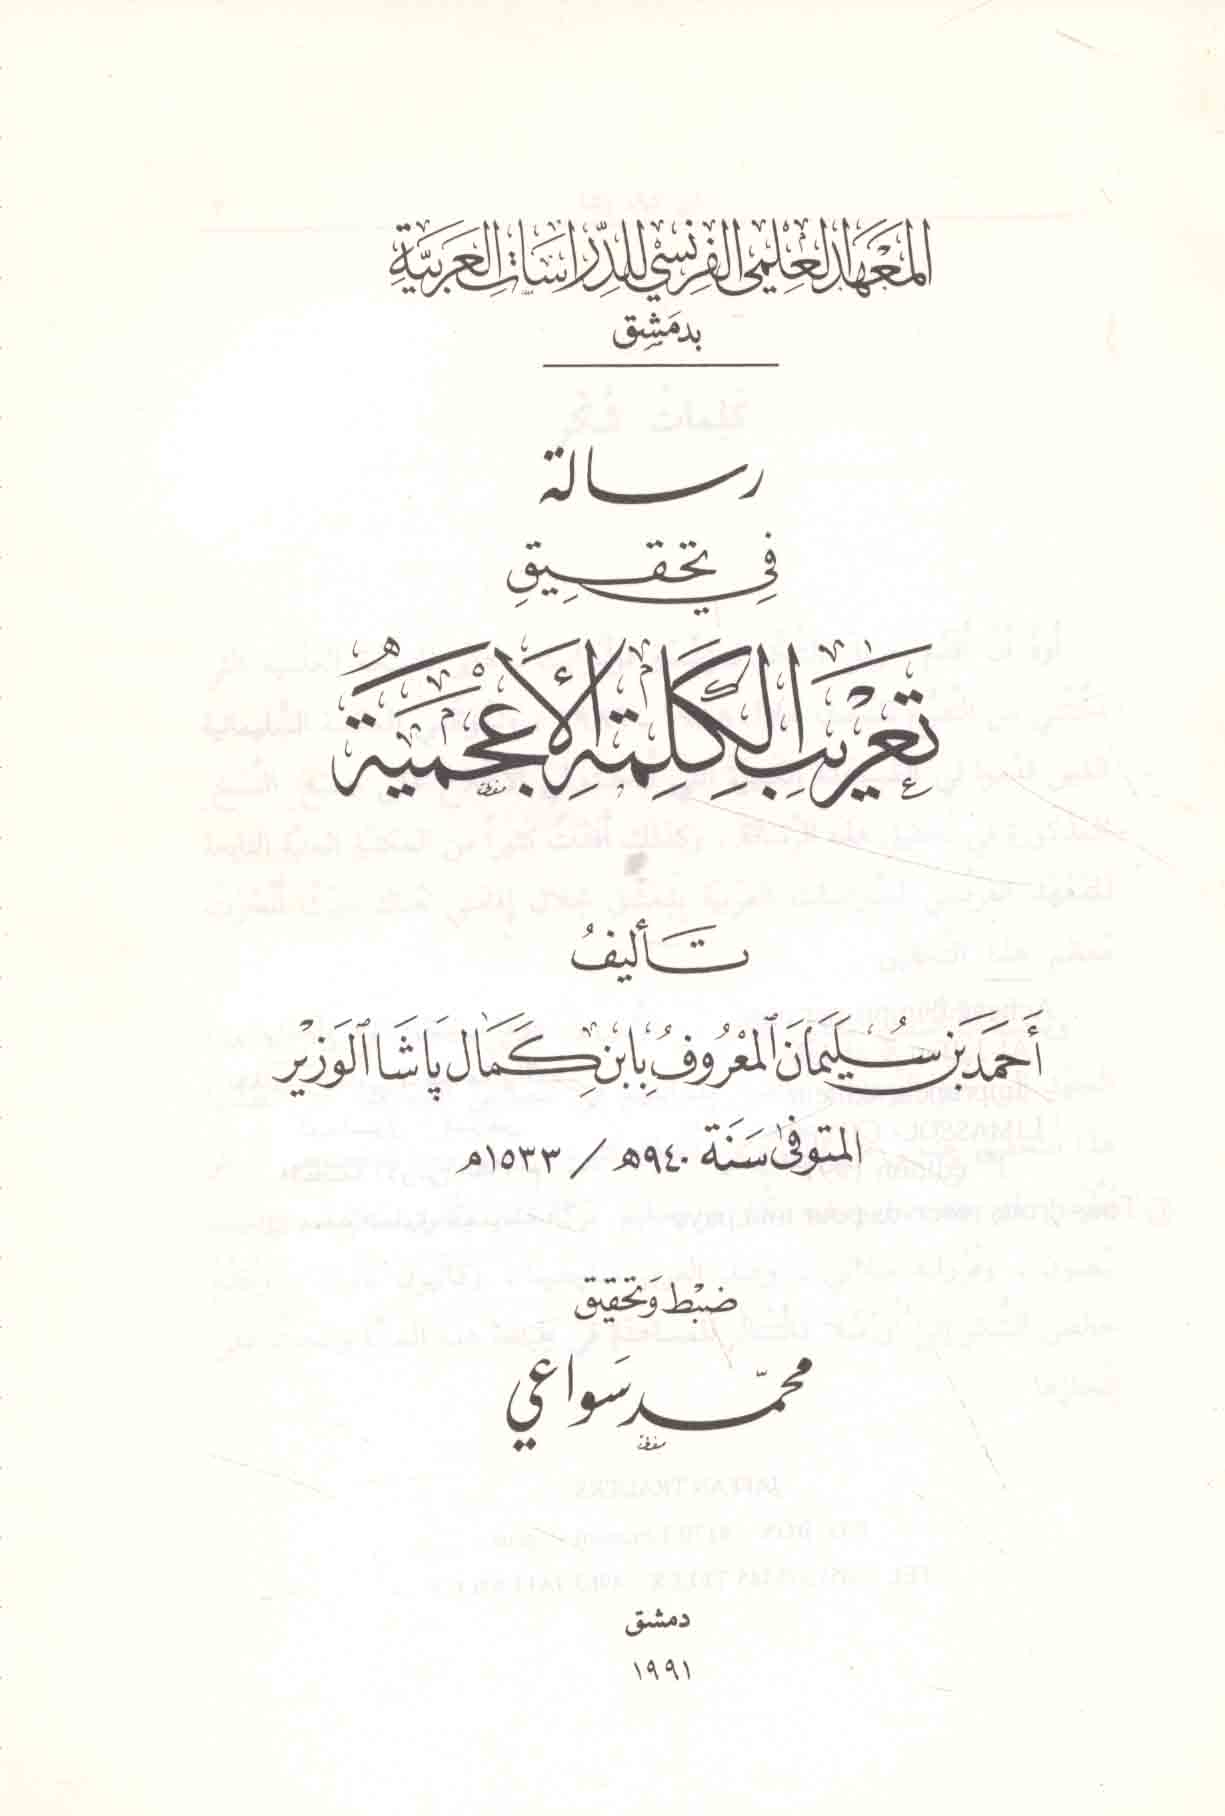 المَعْهَد العِلْمي الفرنسي للدِّرَاسَاتِ العَرَبيَّةِ
بدمَشِق
رسالة
في تحقيقِ
تَعْرِيبِ الكَلِمَةِ الأَعْجَمِيَّةِ
تأليفُ
أَحمَد بَن سُلَيمَان المَعْرُوفُ بابن كَمَال پَاشَا الوَزيْر
المتوفى سَنَة ٩٤٠هـ / ١٥٣٣م
ضَبْط وَتحقيق
محمّد سَواعي
دمشق
١٩٩١